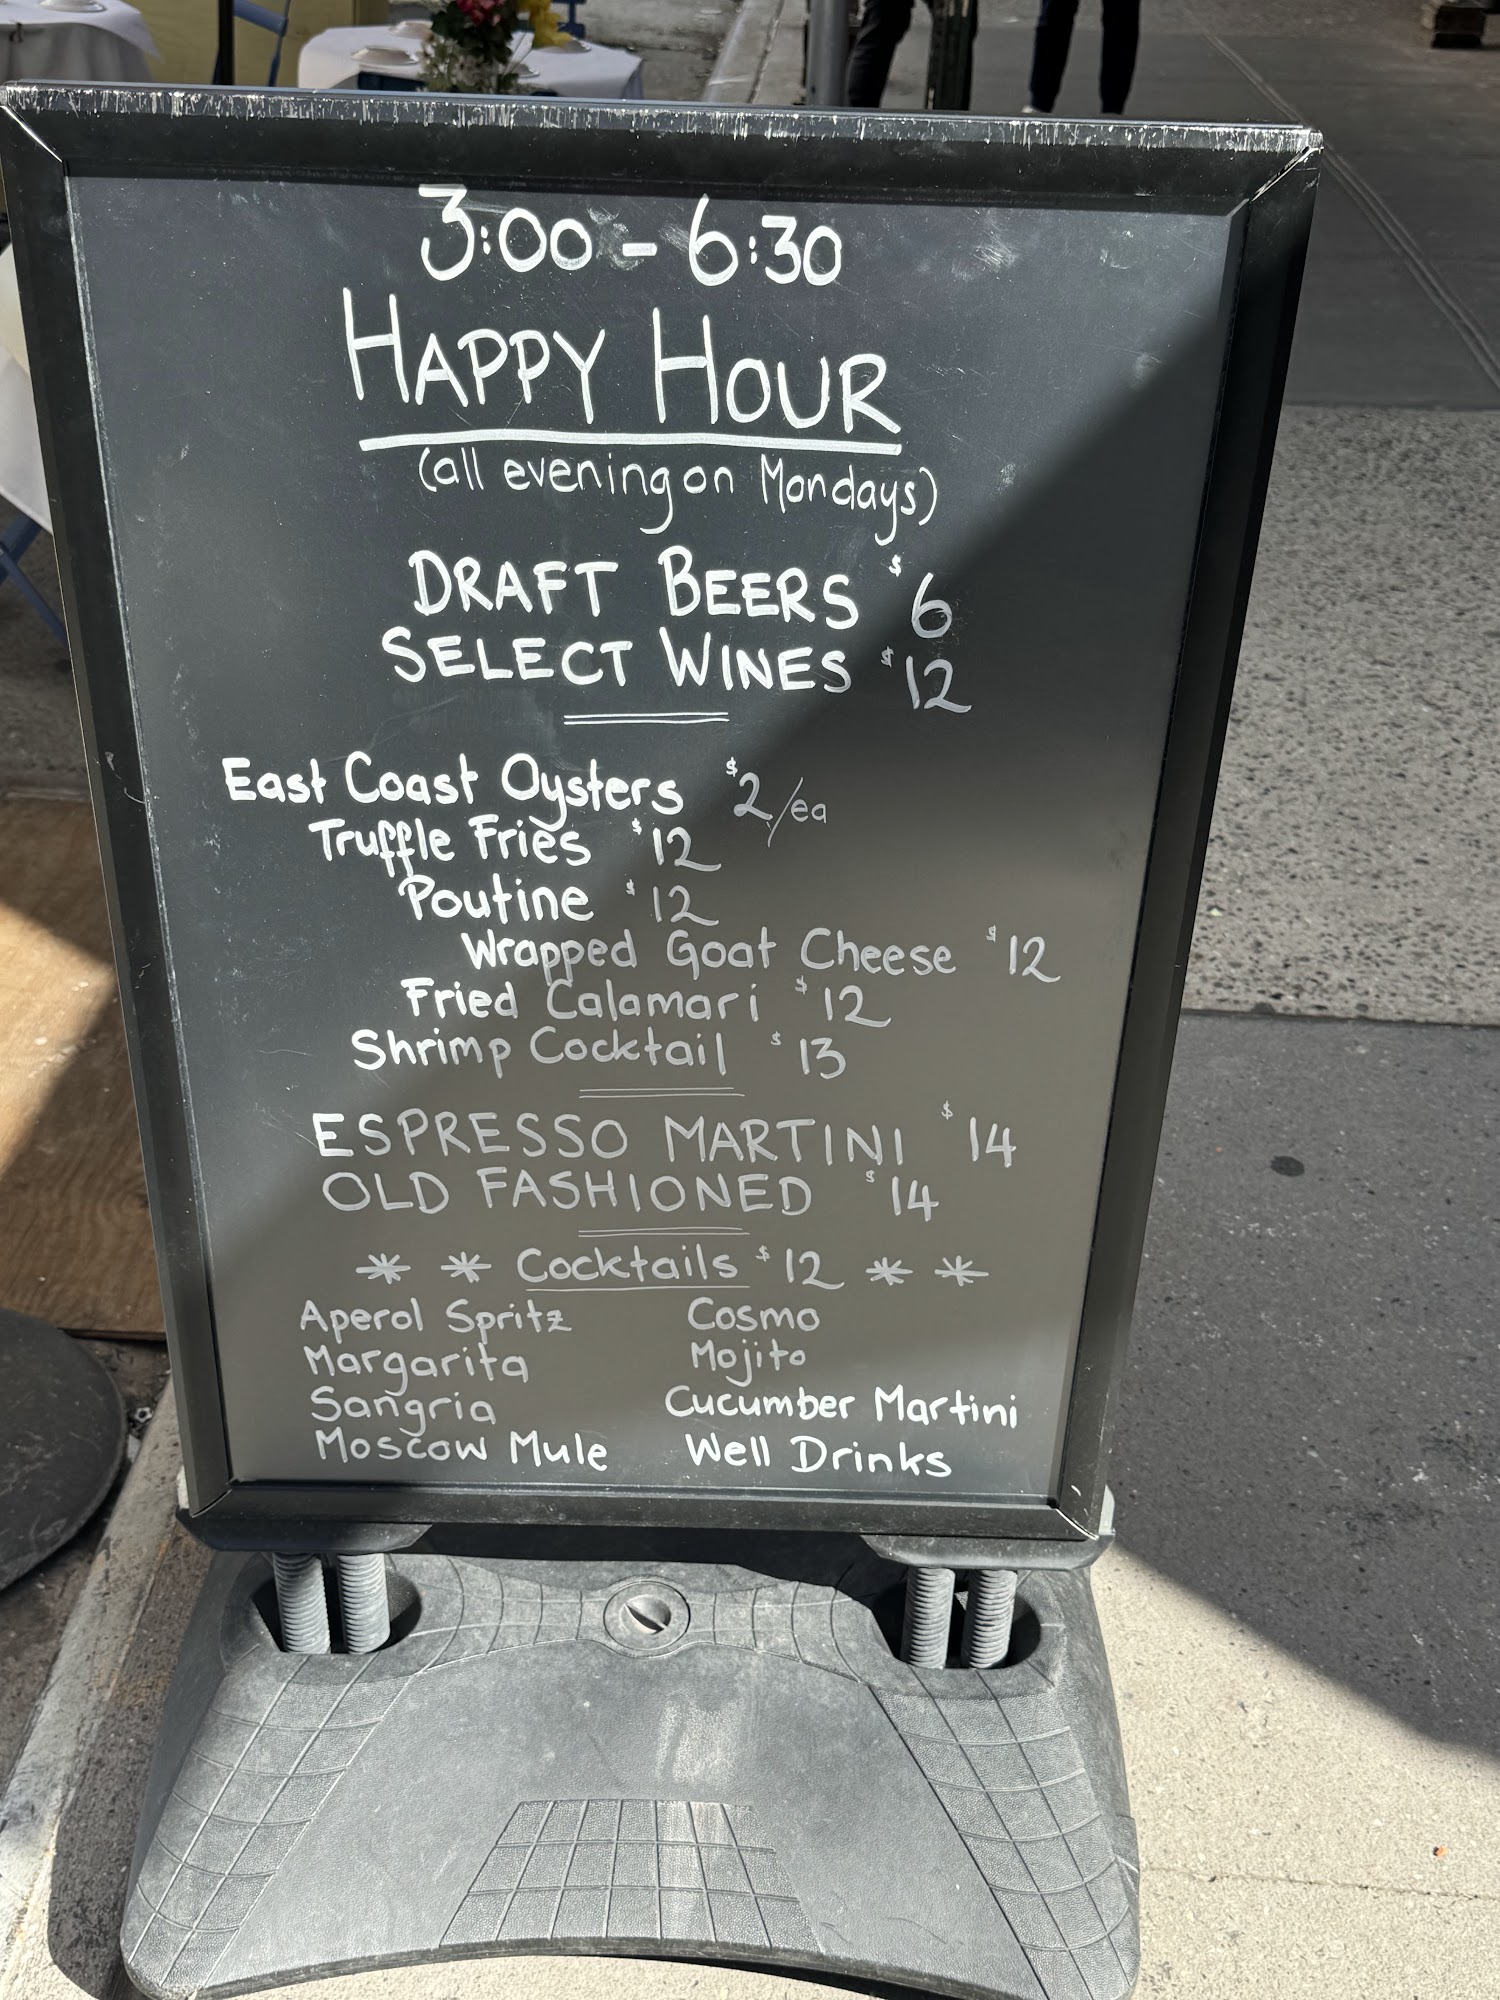 3:00 - 6:30
HAPPY HOUR
(all evening on Mondays)
DRAFT BEERS $6
SELECT WINES $12
East Coast Oysters $2/ea
Truffle Fries $12
Poutine $12
Wrapped Goat Cheese $12
Fried Calamari $12
Shrimp Cocktail $13
ESPRESSO MARTINI $14
OLD FASHIONED $14
* * Cocktails $12 * *
Aperol Spritz Cosmo
Margarita Mojito
Sangria Cucumber Martini
Moscow Mule Well Drinks